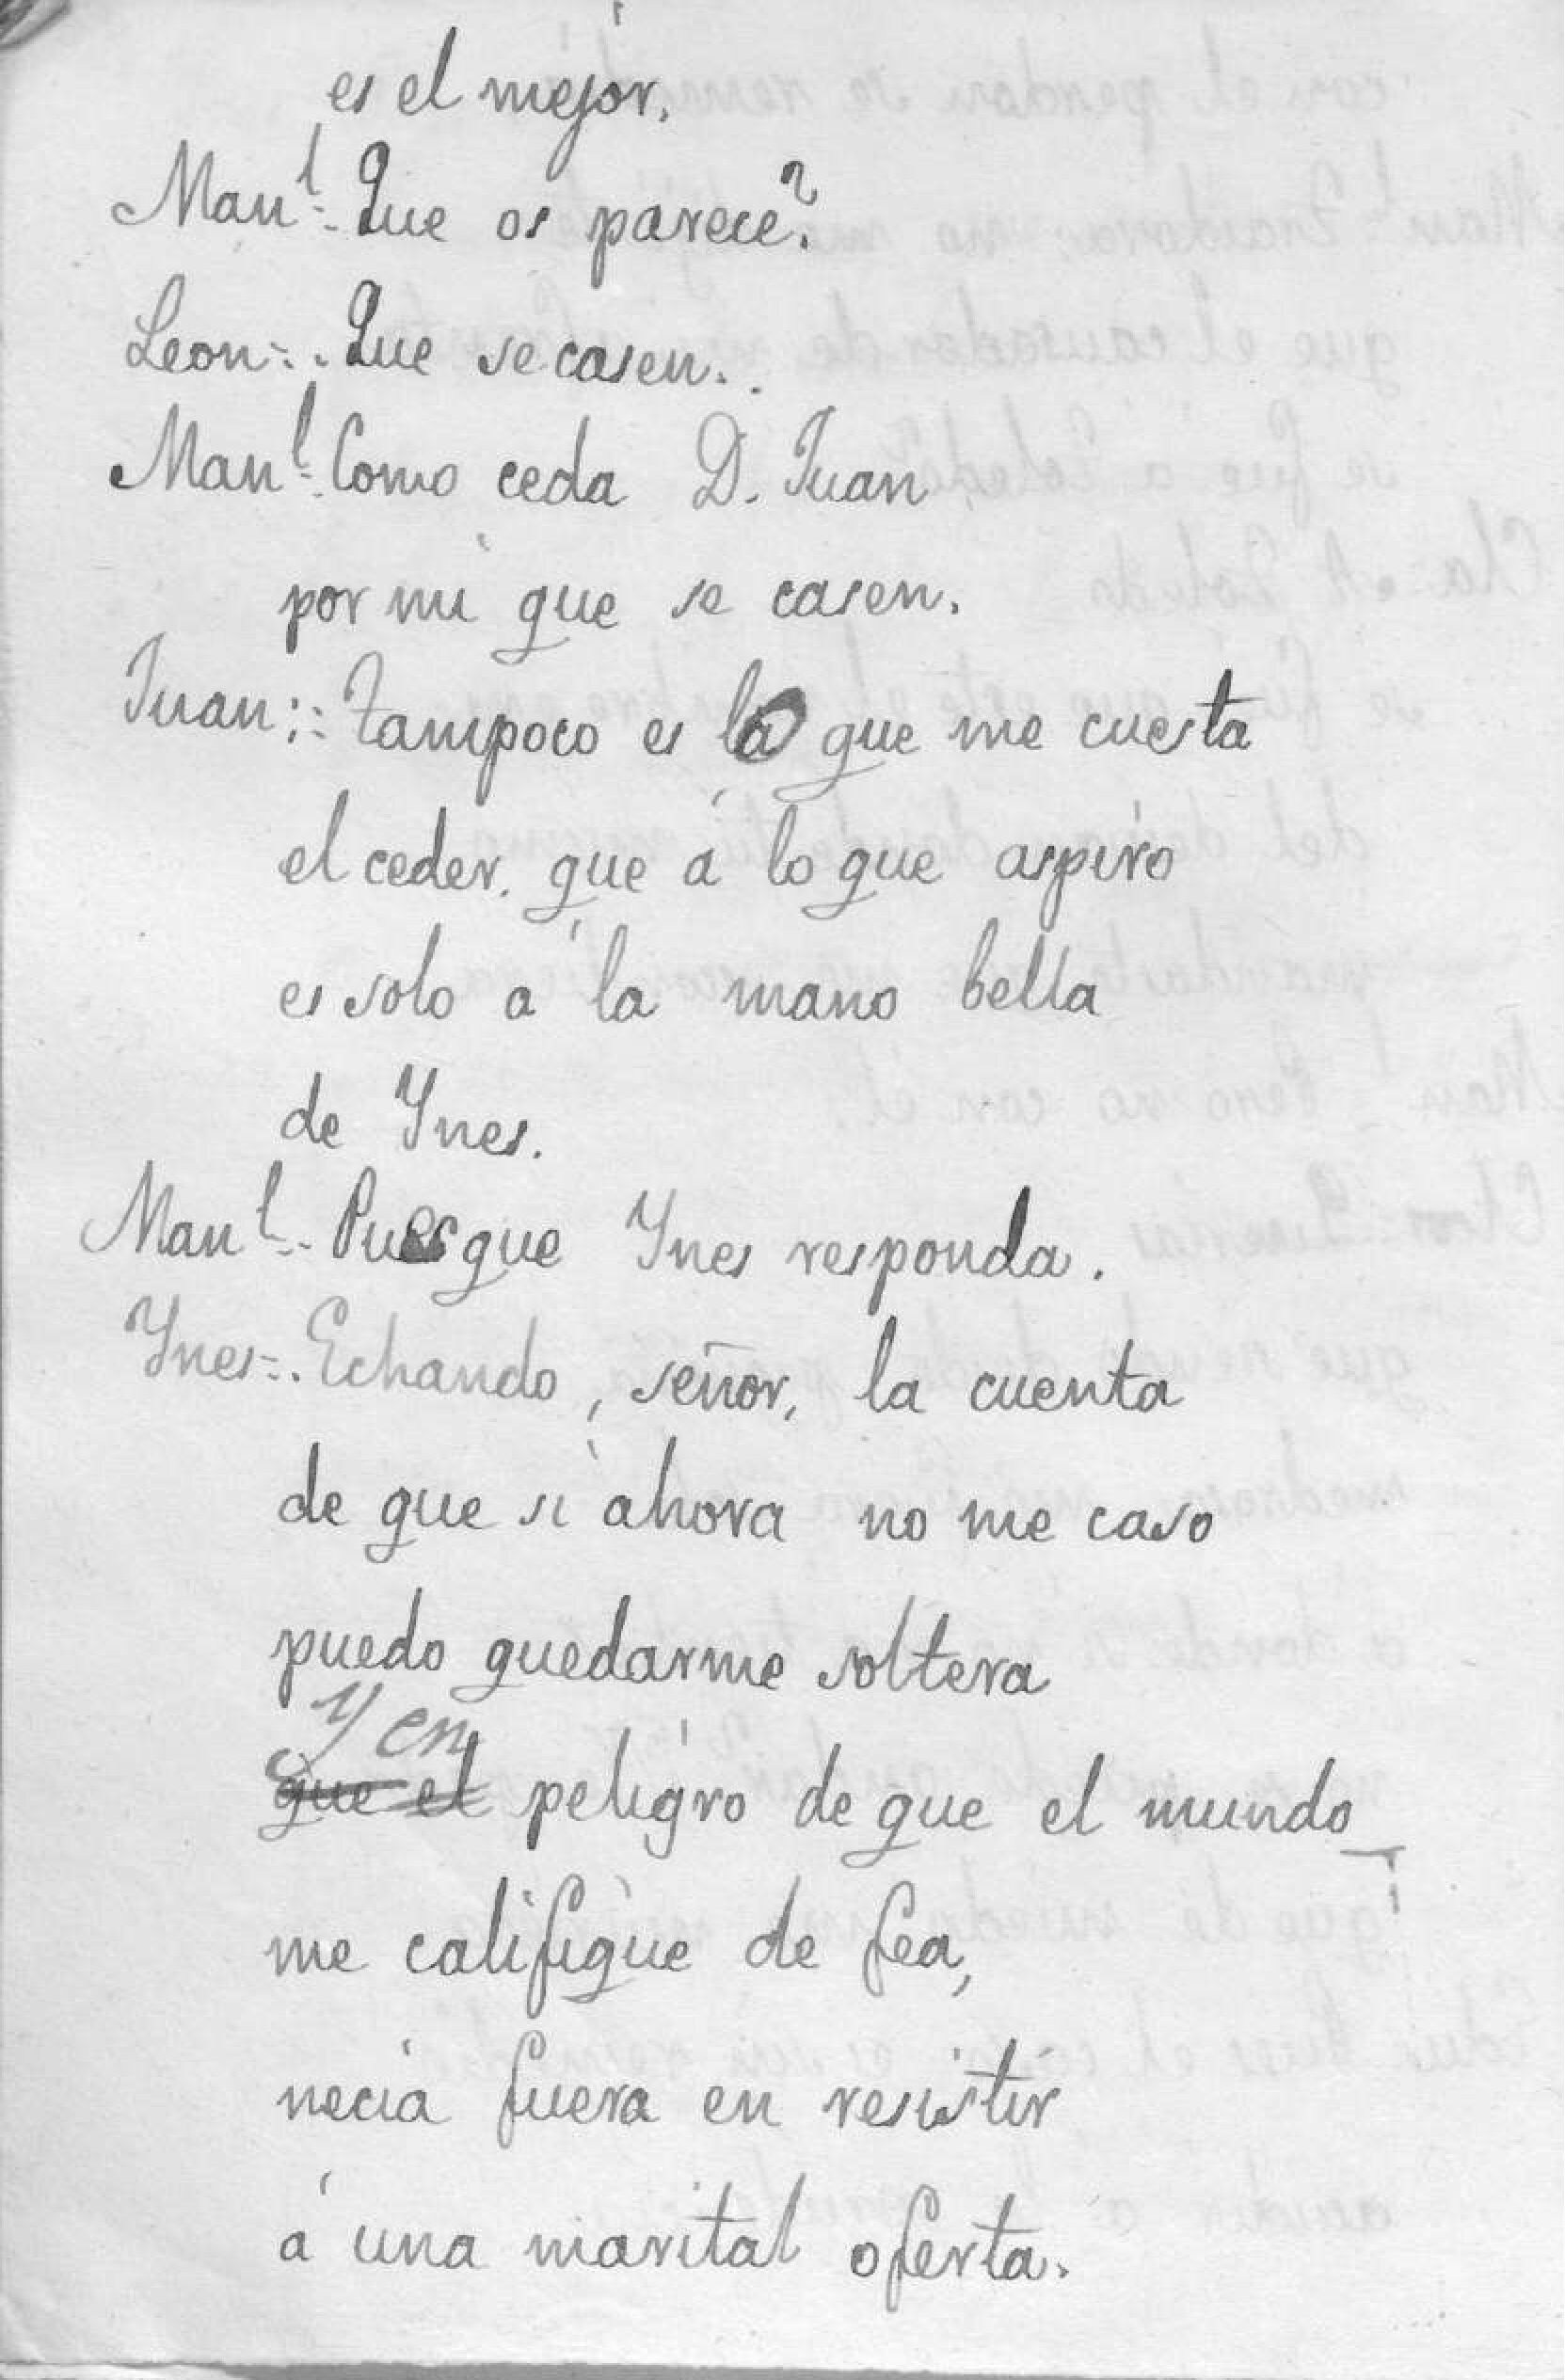 es el mejor.
Man^l=. Que os parece?
Leon=.. Que se casen..
Man^l=. Como ceda D. Juan
por mi que se casen.
Juan:: Tampoco es lo que me cuesta
el ceder. que á lo que aspiro
es solo á la mano bella
de Ynes.
Man^l=. Pues que Ynes responda.
Ynes=. Echando, señor, la cuenta
de que si ahora no me caso
puedo quedarme soltera
y en
que el peligro de que el mundo
me califique de fea,
necia fuera en resistir
á una marital oferta.